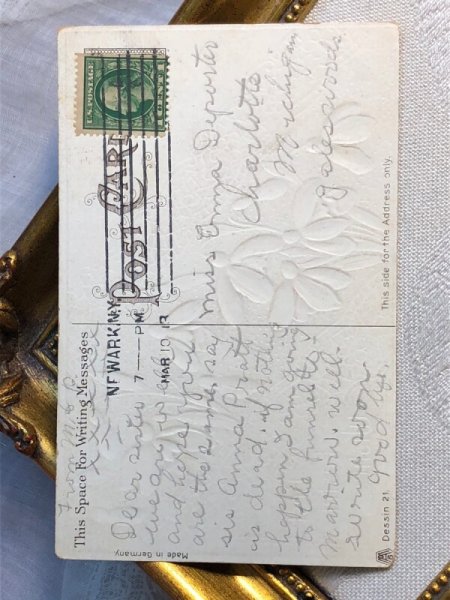 This Space For Writing Messages
From M.
Dear sister
we are well
and hope you
are the same. say
sis Anna Pratt
is dead. if nothing
happen I am going
to the funrel to
morrow. well
write soon
good by.
Made in Germany.
Dessin 21.
U.S. POSTAGE
1 CENT 1
POST CARD
NEWARK N.Y.
7 - PM
MAR 10
Miss Emma Deporter
Charlotte
Michigan
This side for the Address only.